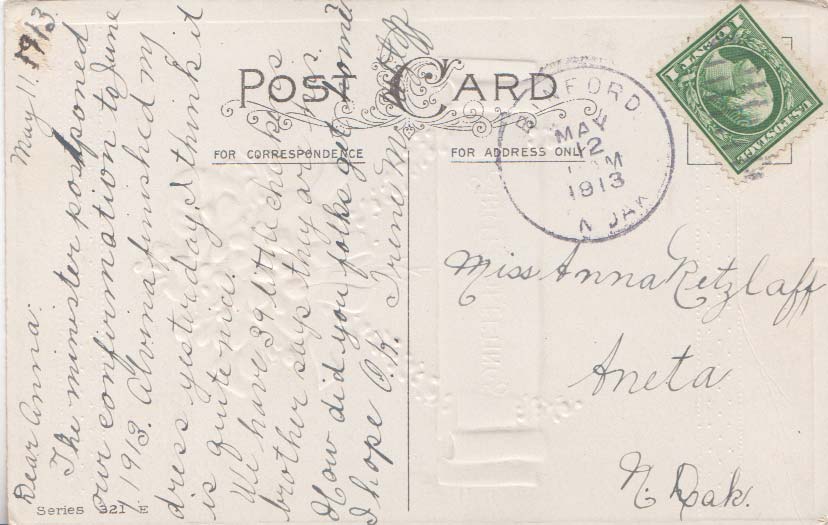 May 11. 1913
Dear Anna:
The minister postponed
our confirmation to June
1, 1913. Alvina finished my
dress yesterday, I think it
is quite nice.
We have 39 little chickens
brother says they are his.
How did you folks get home?
I hope O.K. Irene M.
POST CARD
FOR CORRESPONDENCE
FOR ADDRESS ONLY
MAY
12
M
1913
N DAK
U.S. POSTAGE
1 CENT 1
Miss Anna Retzlaff
Aneta
N. Dak.
Series 321 E